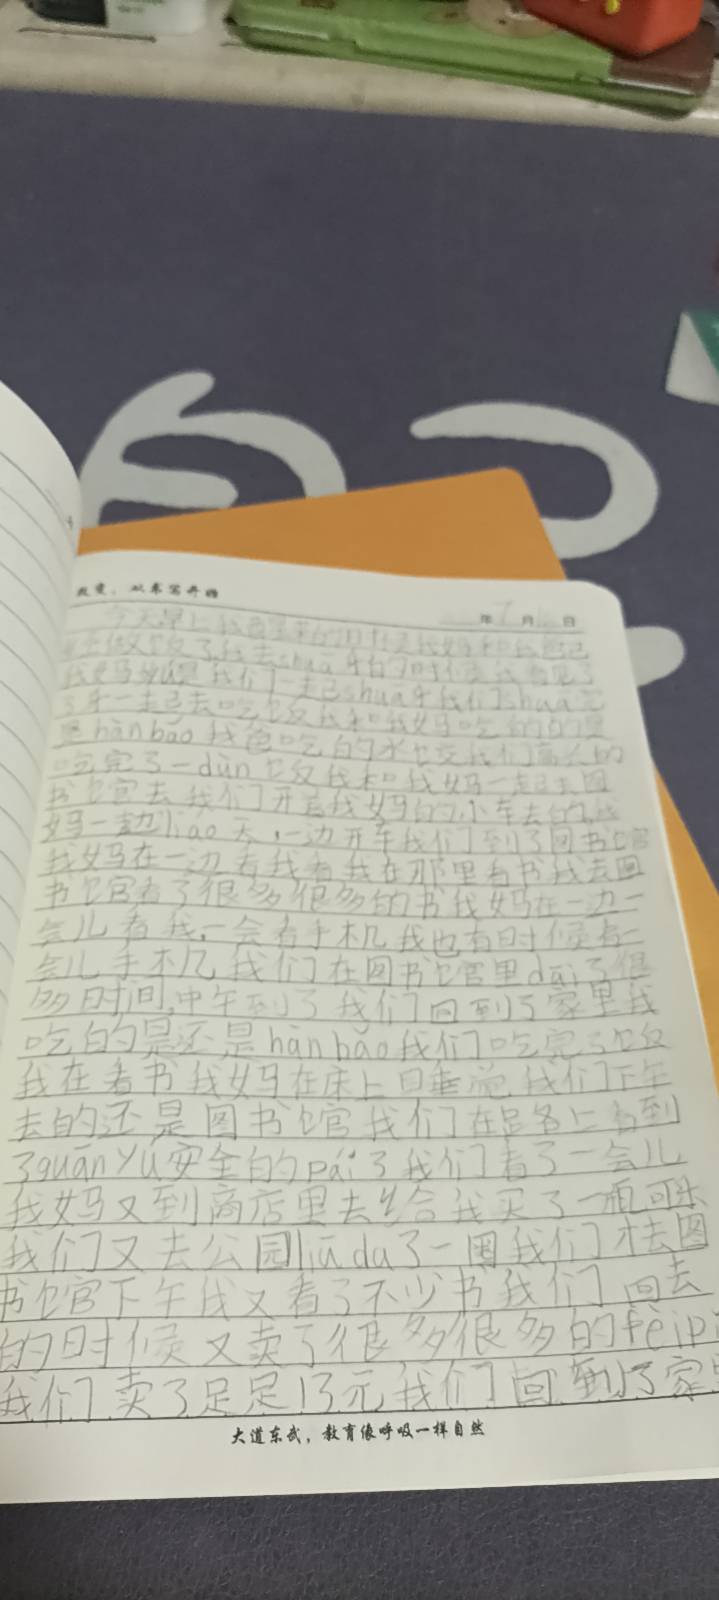 教变，从书写开始
年 7 月 日
今天早上我醒来的时候我妈和我爸已
做饭了我去shuā牙的时候我看见了
我妈 是我们一起shuā牙我们shuā完
了牙一起去吃饭我和我妈吃的的是
hàn bǎo我爸吃的水饺我们高兴的
吃完了一dùn饭我和我妈一起去图
书馆去我们开着我妈的小车去的,我
妈一边liáo天,一边开车我们到了图书馆
我妈在一边看我看我在那里看书我去图
书馆看了很多很多的书我妈在一边一
会儿看我,一会看手机我也有时候看一
会儿手机我们在图书馆里dāi了很
多时间,中午到了我们回到了家里我
吃的是还是hàn bǎo我们吃完了饭
我在看书我妈在床上睡觉我们下午
去的还是图书馆我们在路上看到
了guān yú安全的pái了我们看了一会儿
我妈又到商店里去给我买了一瓶可乐
我们又去公园liū da了一圈我们才去图
书馆下午我又看了不少书我们回去
的时候又卖了很多很多的fèi pǐ
我们卖了足足13元,我们回到了家里
大道东武，教育像呼吸一样自然